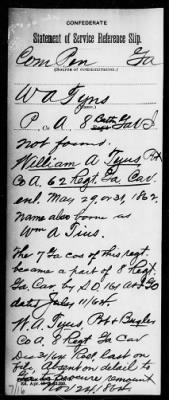 CONFEDERATE
Statement of Service Reference Slip.
Com Pen Ga
(Source of communication.)
W A Tyns
(Name.)
P. Co A. 8 Ga
not found.
William A Tyus, Pvt
Co A, 62 Regt. Ga. Cav.
enl. May 29, or 31, 1862
Name also borne as
Wm A Tius.
The 7 Ga cos of this regt.
became a part of 8 Regt.
Ga Cav. by S.O. 161 A+IGO
dated July 11/64.
W. A. Tyus, Pvt + Bugler
Co A 8 Regt Ga Cav
Dec 31/64 Roll, last on
file, Absent on detail to
procure remount
Nov 24, 1864
7/16